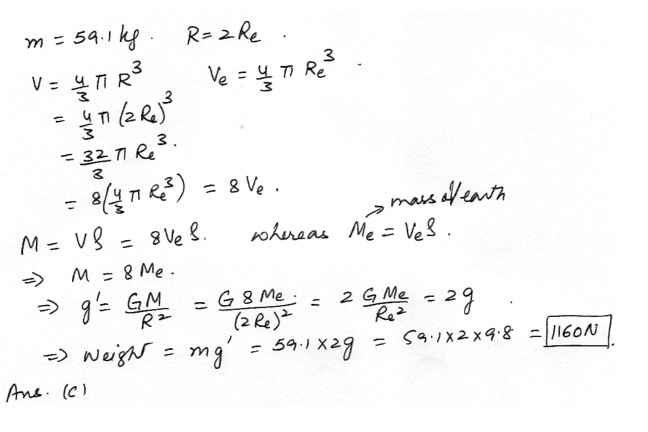 m = 59.1 kg. R = 2Re.
V = 4/3 π R³ Ve = 4/3 π Re³.
= 4/3 π (2Re)³
= 32/3 π Re³.
= 8(4/3 π Re³) = 8Ve.
mass of earth
M = Vρ = 8Veρ. whereas Me = Veρ.
⇒ M = 8Me.
⇒ g' = GM/R² = G8Me/(2Re)² = 2 GMe/Re² = 2g.
⇒ weight = mg' = 59.1×2g = 59.1×2×9.8 = 1160N.
Ans. (c)